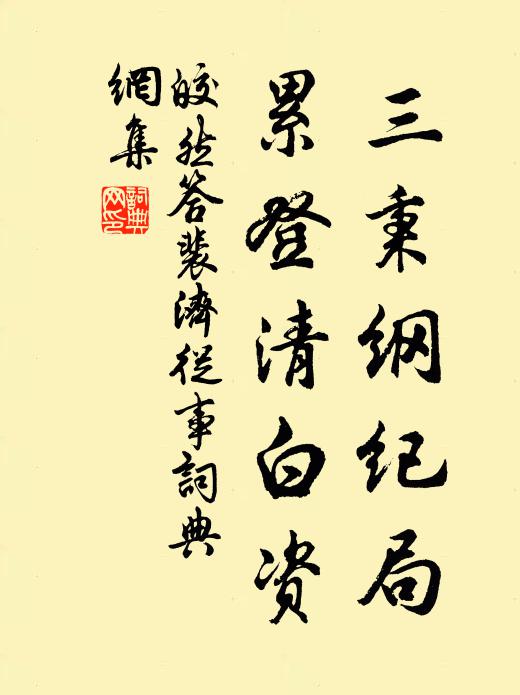 三秉纲纪局
累登清白资
皎然答裴济从事詞典
網集
詞典
网印